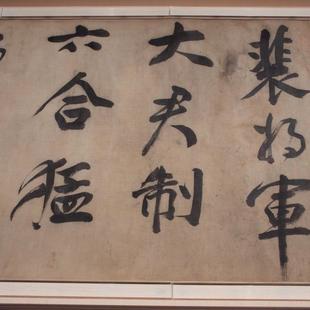 裴将軍
大夫制
六合猛